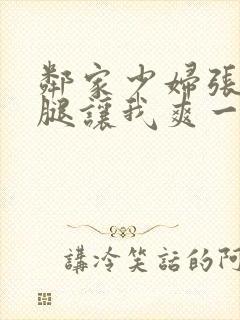 鄰家少婦張
腿讓我爽一
講冷笑話的阿